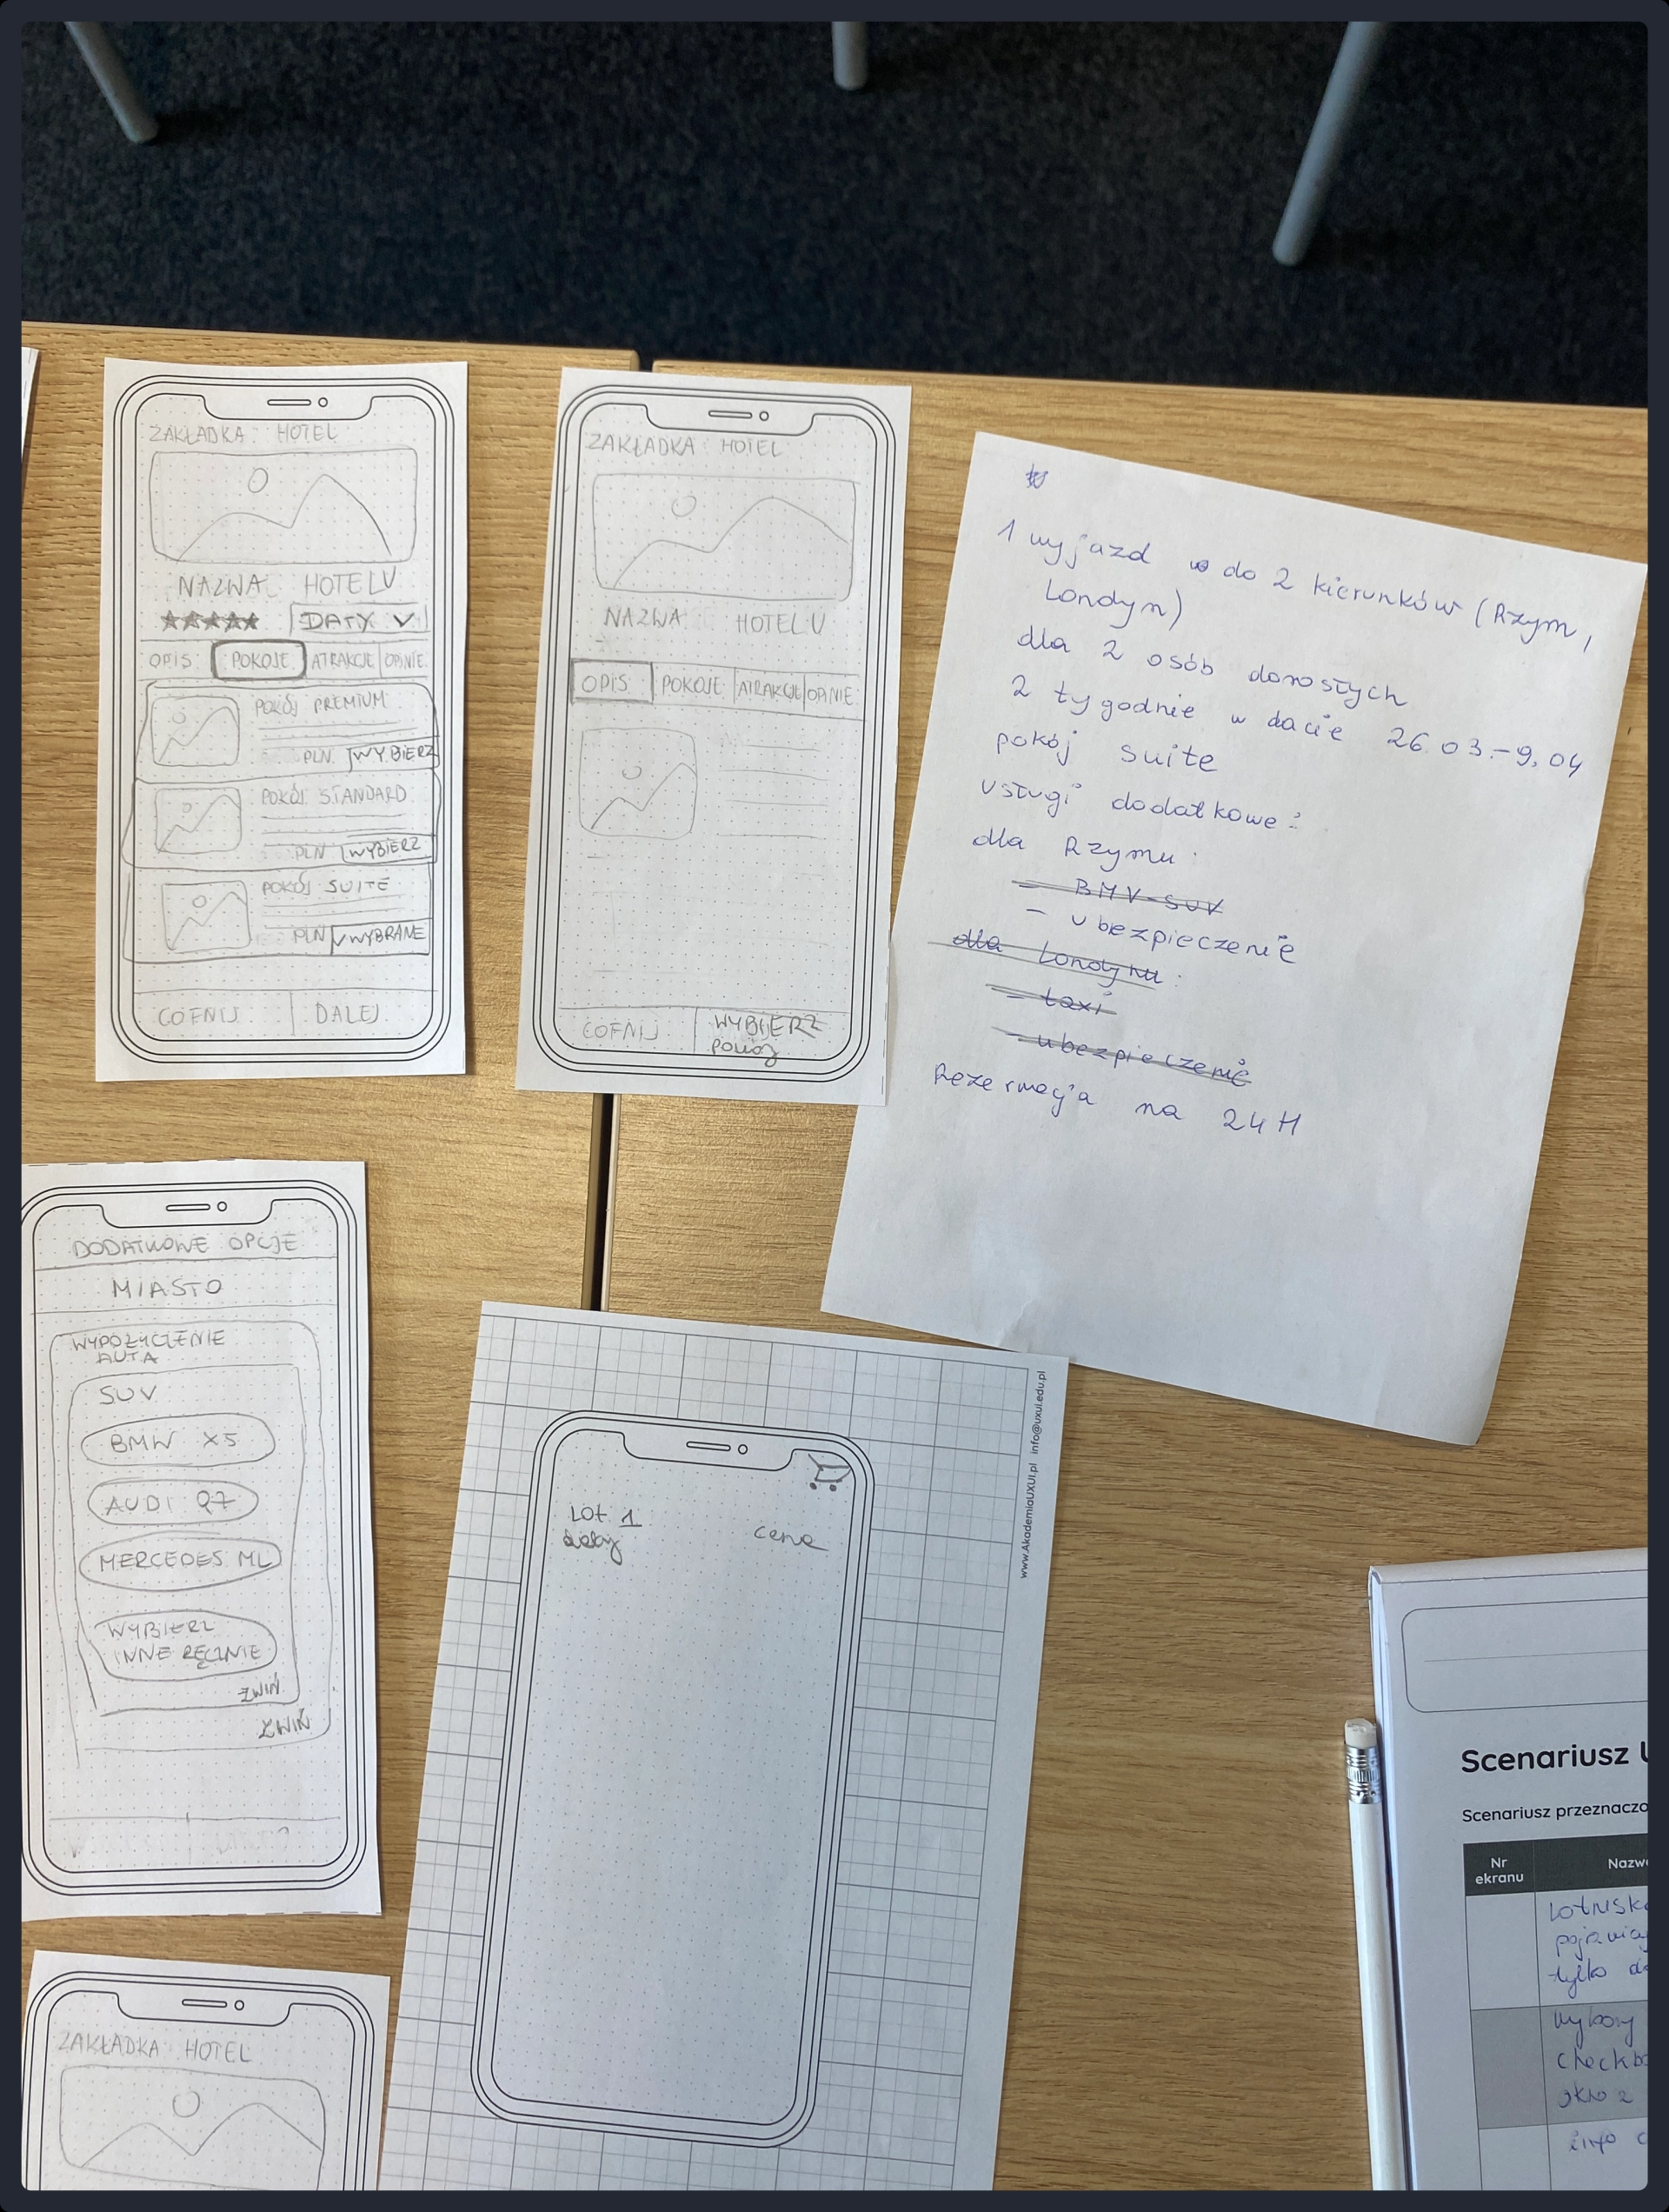 ZAKŁADKA HOTEL
NAZWA HOTELU
DATY
OPIS POKOJE ATRAKCJE OPINIE
POKÓJ PREMIUM
PLN WYBIERZ
POKÓJ STANDARD
PLN WYBIERZ
POKÓJ SUITE
PLN WYBRANE
COFNIJ DALEJ
ZAKŁADKA HOTEL
NAZWA HOTELU
OPIS POKOJE ATRAKCJE OPINIE
COFNIJ WYBIERZ
POKÓJ
1 wyjazd do 2 kierunków (Rzym,
Londyn)
dla 2 osób dorosłych
2 tygodnie w dacie 26.03.-9.04
pokój suite
usługi dodatkowe:
dla Rzymu:
- BMV-SUV
- ubezpieczenie
dla Londynu:
- taxi
- ubezpieczenie
Rezerwacja na 24H
DODATKOWE OPCJE
MIASTO
WYPOŻYCZENIE
AUTA
SUV
BMW X5
AUDI Q7
MERCEDES ML
WYBIERZ
INNE RĘCZNIE
ZWIŃ
ZWIŃ
Lot 1 cena
www.AkademiaUXUI.pl info@uxui.edu.pl
ZAKŁADKA HOTEL
Scenariusz
Scenariusz
Nr
ekranu
tylko
wybory
okno z
info